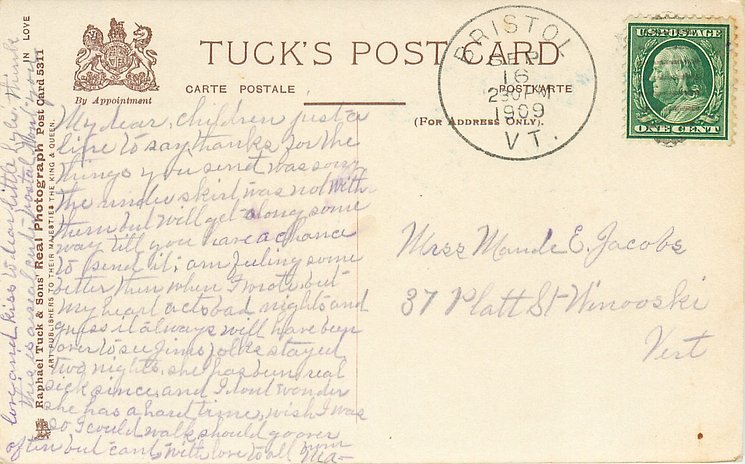 TUCK'S POST CARD
CARTE POSTALE
POSTKARTE
(FOR ADDRESS ONLY).
By Appointment
BRISTOL
SEP
16
2 30 PM
1909
VT.
U.S. POSTAGE
ONE CENT
Raphael Tuck & Sons' Real Photograph Post Card 5311
IN LOVE
ART PUBLISHERS TO THEIR MAJESTIES THE KING & QUEEN.
My dear children just a
line to say thanks for the
things you send was sorry
the under skirt was not with
them but will get along some
way till you have a chance
to send it; am feeling some
better then when I wrote but
my heart acts bad nights and
guess it always will have been
over to see Jims folks stayed
two nights, she has been real
sick since and I dont wonder
she has a hard time, wish I was
so I could walk should go over
often but cant, with love to all from
Ma-
love and kiss to dear little
this is a real card postal
think
Miss Maude E. Jacobs
37 Platt St Winooski
Vert